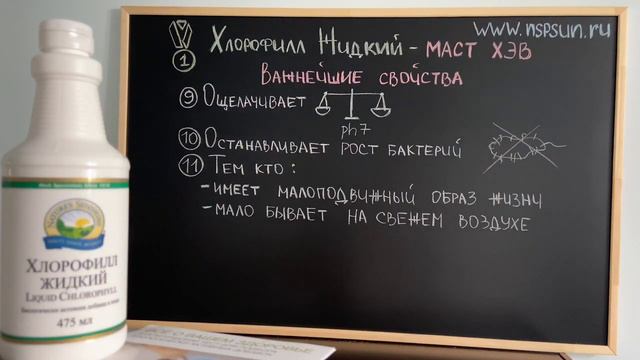 www.nspsun.ru
1 Хлорофилл Жидкий - маст хэв
Важнейшие свойства
9 Ощелачивает
ph7
10 Останавливает рост бактерий
11 Тем кто:
- имеет малоподвижный образ жизни
- мало бывает на свежем воздухе
Nature's Sunshine
Хлорофилл
жидкий
Liquid Chlorophyll
475 мл